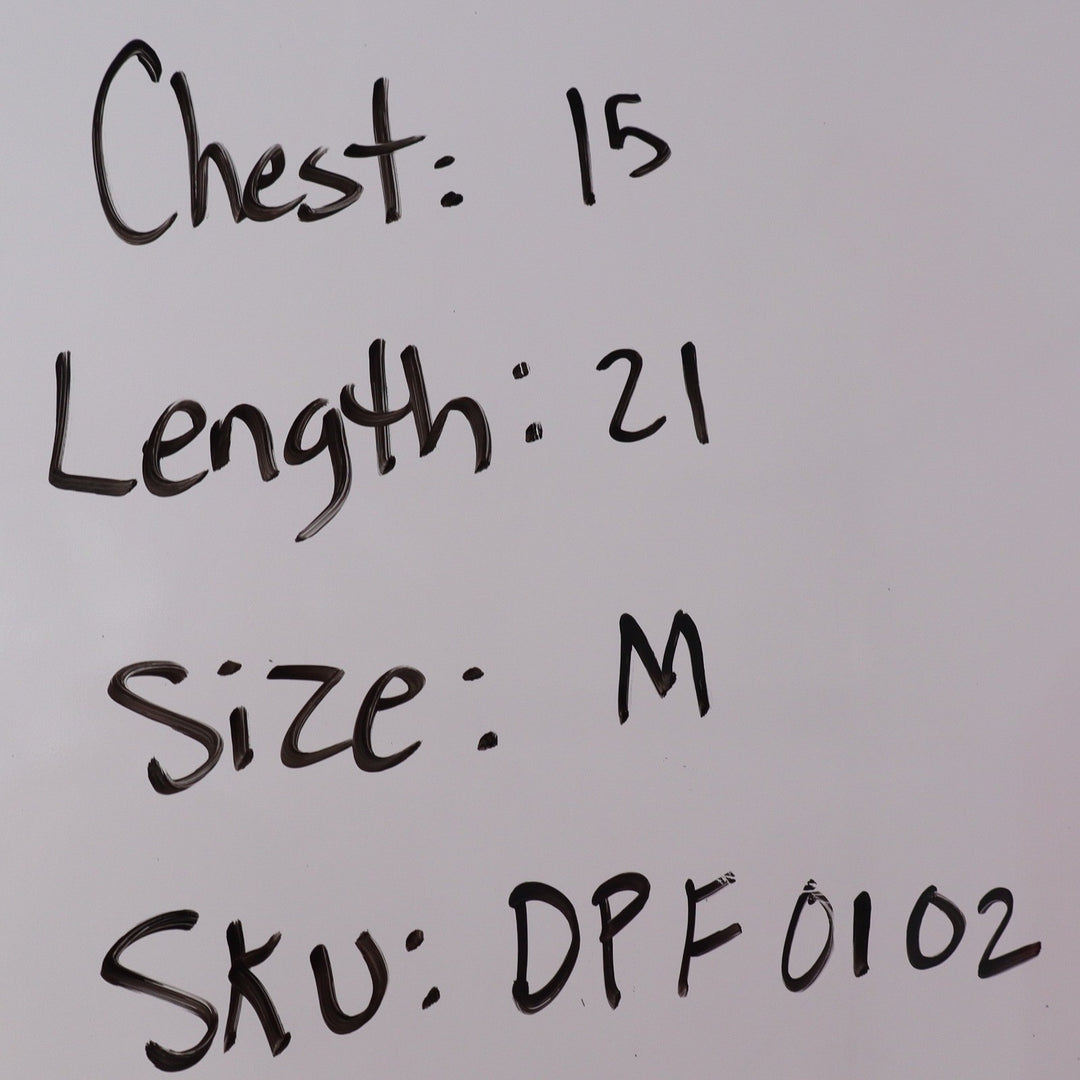 Chest: 15
Length: 21
Size: M
Sku: DPF0102